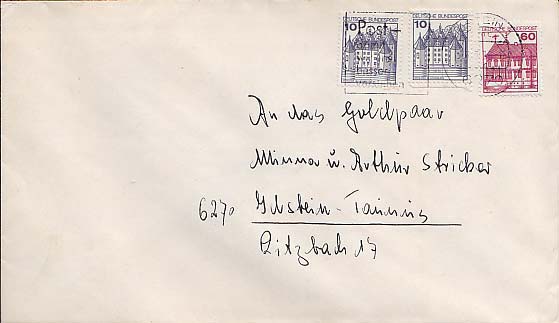 10 DEUTSCHE BUNDESPOST
10 DEUTSCHE BUNDESPOST
60
Post-
An das Goldpaar
Minna u. Arthur Stricker
6270 Idstein-Taunus
Ritzbach 17